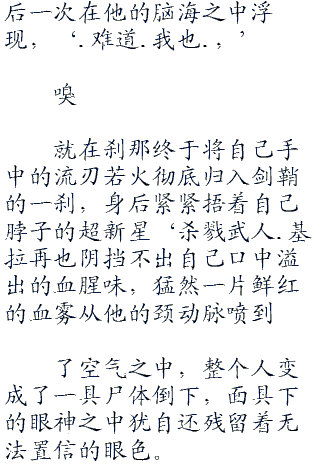 后一次在他的脑海之中浮
现，‘.难道.我也.，’
嗅
就在刹那终于将自己手
中的流刃若火彻底归入剑鞘
的一刹，身后紧紧捂着自己
脖子的超新星‘杀戮武人.基
拉再也阴挡不出自己口中溢
出的血腥味，猛然一片鲜红
的血雾从他的颈动脉喷到
了空气之中，整个人变
成了一具尸体倒下，面具下
的眼神之中犹自还残留着无
法置信的眼色。